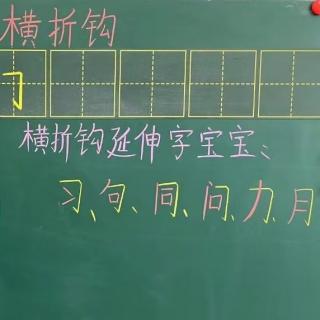 横折钩
𠃌
横折钩延伸字宝宝：
习、句、同、问、力、月